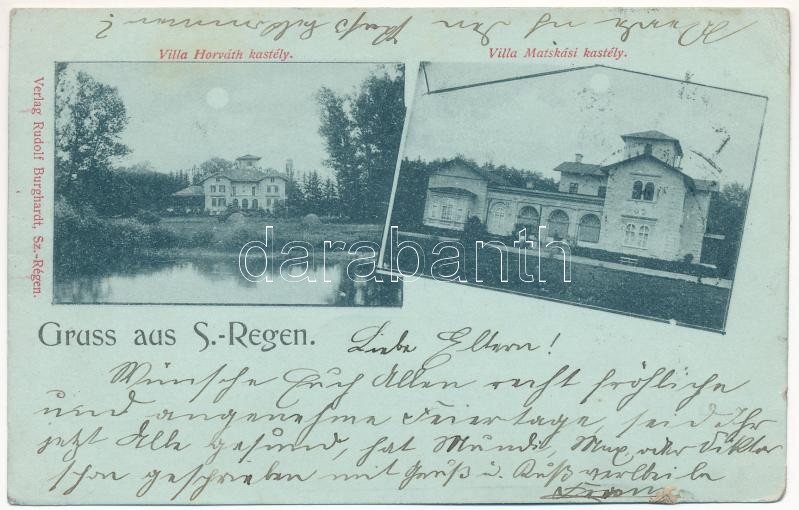 Villa Horváth kastély.
Villa Matskási kastély.
Verlag Rudolf Burghardt, Sz.-Régen.
darabanth
Gruss aus S.-Regen.
Liebe Eltern!
Wünsche Euch Allen recht fröhliche
und angenehme Feiertage, seid Ihr
jetzt Alle gesund, hat Mundi, Max, oder Viktor
schon geschrieben mit Gruß u. Kuß verbleibe